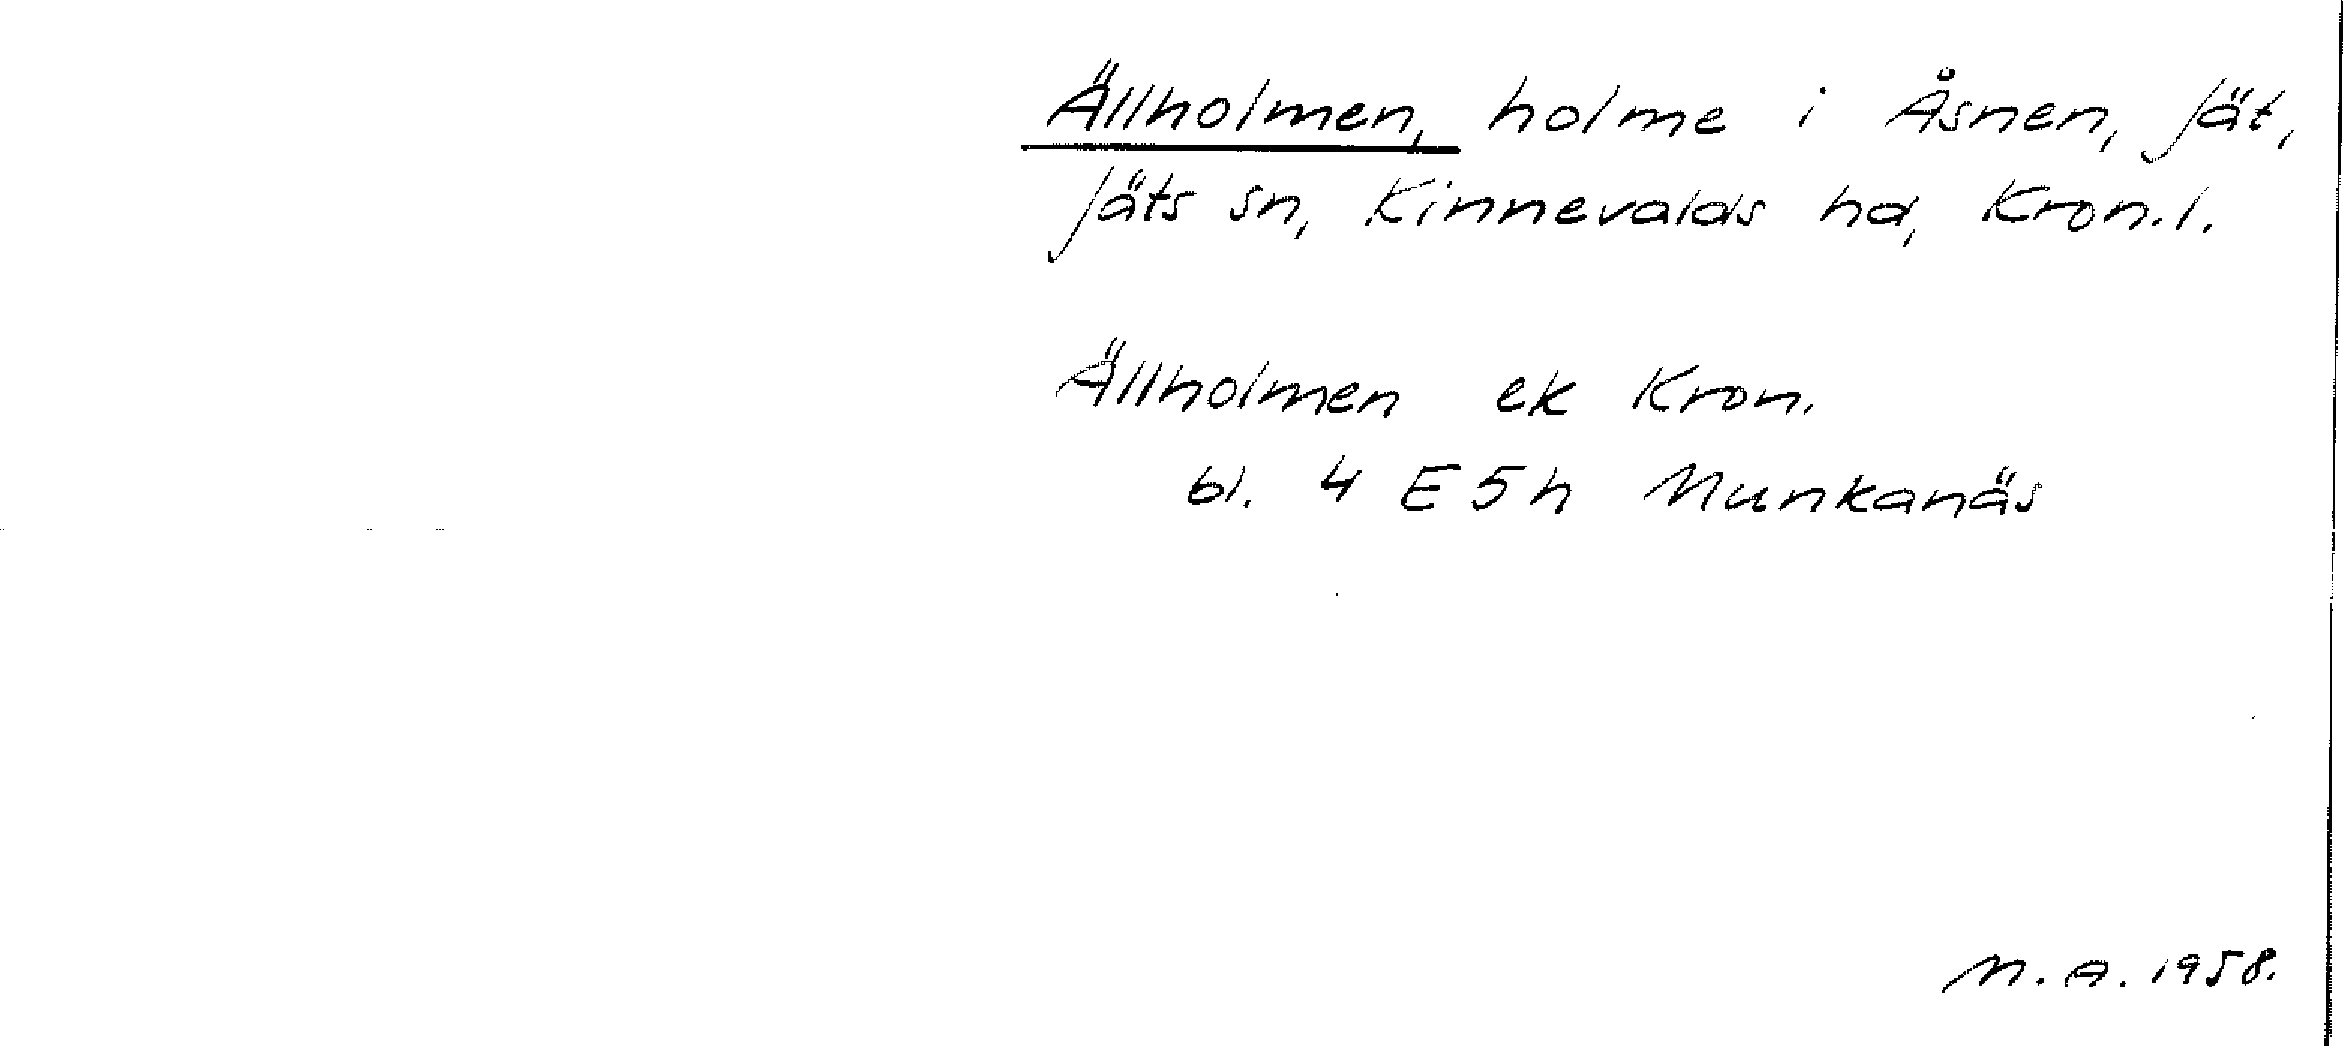 Ällholmen, holme i Åsnen, Jät,
Jäts sn, Kinnevalds hd, Kron.l.
Ällholmen ek Kron.
bl. 4 E 5 h Munkanäs
M. A. 1958.